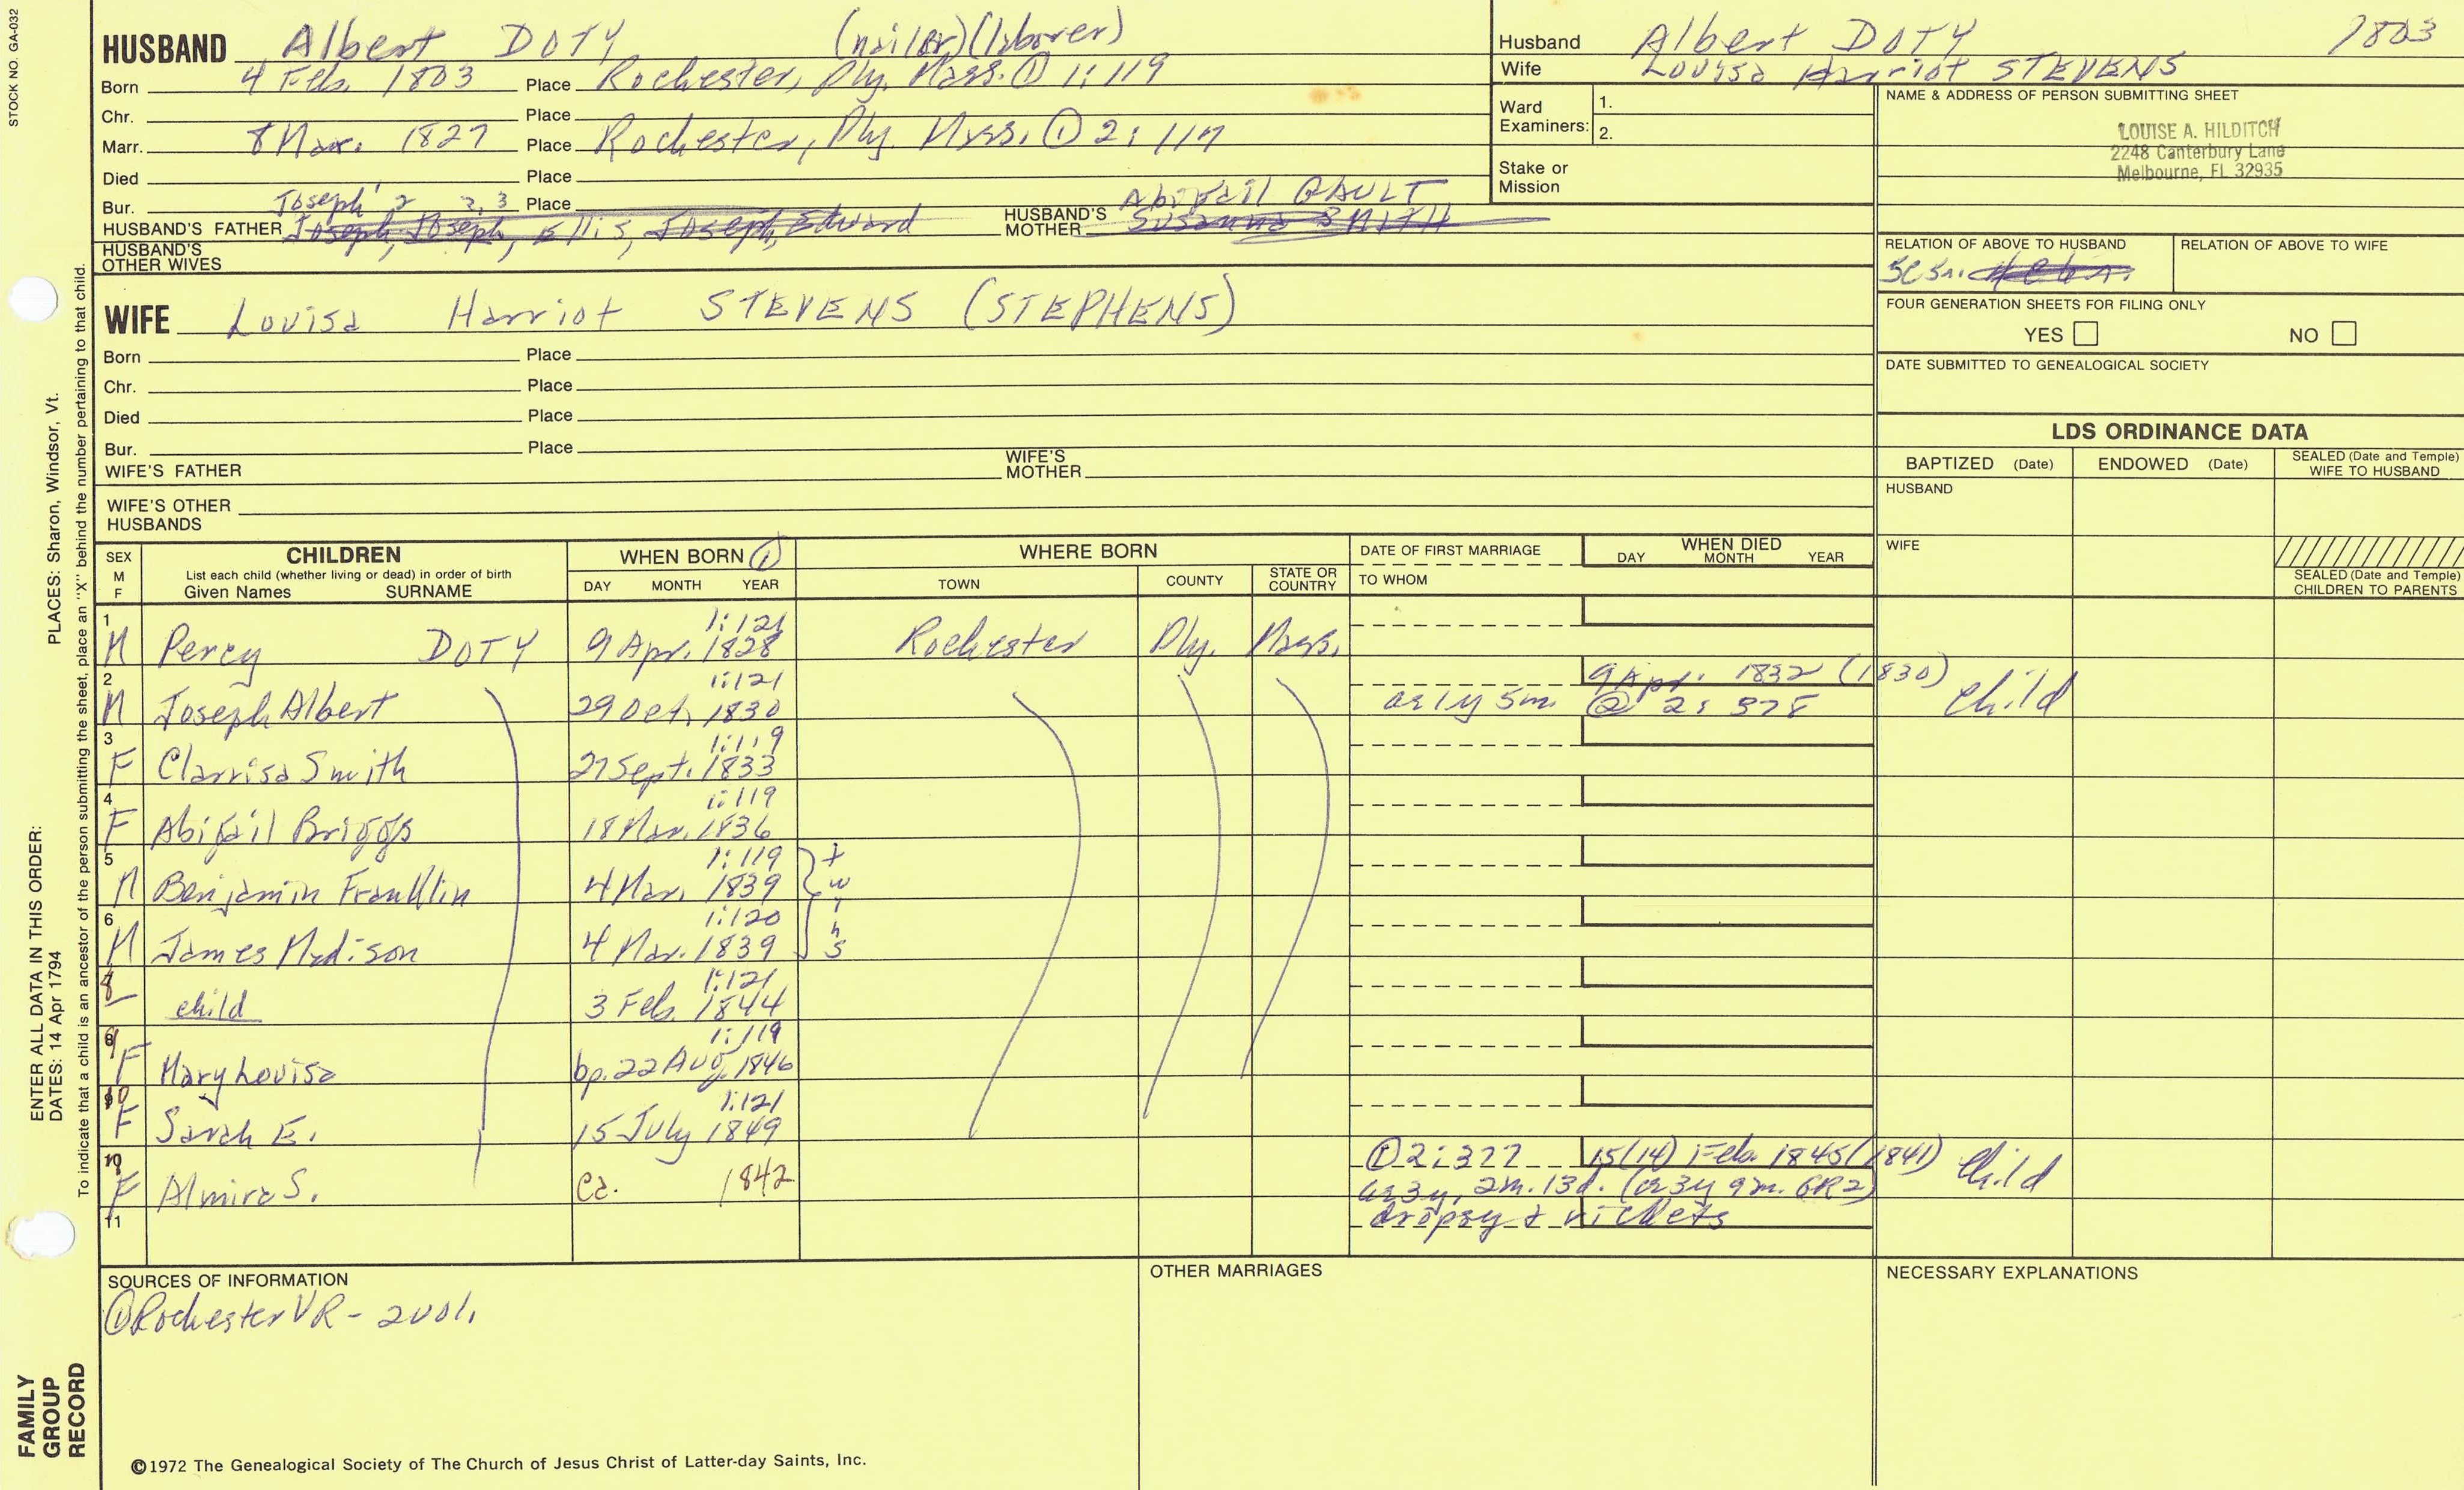 STOCK NO. GA-032
HUSBAND Albert DOTY (nailor)(laborer)
Born 4 Feb. 1803 Place Rochester, Ply. Mass. ① 1:119
Chr. Place
Marr. 8 Mar. 1827 Place Rochester, Ply. Mass. ① 2:117
Died Place
Bur. Place
Joseph 2, 3
HUSBAND'S FATHER Joseph, Joseph, Ellis, Joseph, Edward
Abigail GAULT
HUSBAND'S MOTHER Susanna SMITH
HUSBAND'S OTHER WIVES
Husband Albert DOTY 1803
Wife Louisa Harriot STEVENS
Ward Examiners: 1.
2.
Stake or Mission
NAME & ADDRESS OF PERSON SUBMITTING SHEET
LOUISE A. HILDITCH
2248 Canterbury Lane
Melbourne, FL 32935
RELATION OF ABOVE TO HUSBAND
RELATION OF ABOVE TO WIFE
FOUR GENERATION SHEETS FOR FILING ONLY
YES NO
DATE SUBMITTED TO GENEALOGICAL SOCIETY
WIFE Louisa Harriot STEVENS (STEPHENS)
Born Place
Chr. Place
Died Place
Bur. Place
WIFE'S FATHER
WIFE'S MOTHER
WIFE'S OTHER HUSBANDS
LDS ORDINANCE DATA
BAPTIZED (Date) ENDOWED (Date) SEALED (Date and Temple) WIFE TO HUSBAND
HUSBAND
WIFE
SEALED (Date and Temple) CHILDREN TO PARENTS
SEX M F
CHILDREN
List each child (whether living or dead) in order of birth
Given Names SURNAME
WHEN BORN ①
DAY MONTH YEAR
WHERE BORN
TOWN COUNTY STATE OR COUNTRY
DATE OF FIRST MARRIAGE
TO WHOM
WHEN DIED
DAY MONTH YEAR
1:121
1 M Percy DOTY 9 Apr. 1828 Rochester Ply. Mass.
1:121 9 Apr. 1832 (1830)
2 M Joseph Albert 29 Oct. 1830 ae 1y 5m. ① 2:378 Child
1:119
3 F Clarrisa Smith 27 Sept. 1833
1:119
4 F Abigail Briggs 18 Mar. 1836
1:119
5 M Benjamin Franklin 4 Mar. 1839 twins
1:120
6 M James Madison 4 Mar. 1839
1:121
8 child 3 Feb. 1844
1:119
9 F Mary Louisa bp. 22 Aug. 1846
1:121
10 F Sarah E. 15 July 1849
① 2:377 15(14) Feb. 1845(1841) Child
F Almira S. ca. 1842 ae 3y, 2m. 13d. (ae 3y 9m. GR2)
11 dropsy & rickets
SOURCES OF INFORMATION
① Rochester VR - 2 vol.
OTHER MARRIAGES
NECESSARY EXPLANATIONS
©1972 The Genealogical Society of The Church of Jesus Christ of Latter-day Saints, Inc.
FAMILY GROUP RECORD
ENTER ALL DATA IN THIS ORDER:
DATES: 14 Apr 1794
PLACES: Sharon, Windsor, Vt.
To indicate that a child is an ancestor of the person submitting the sheet, place an "X" behind the number pertaining to that child.